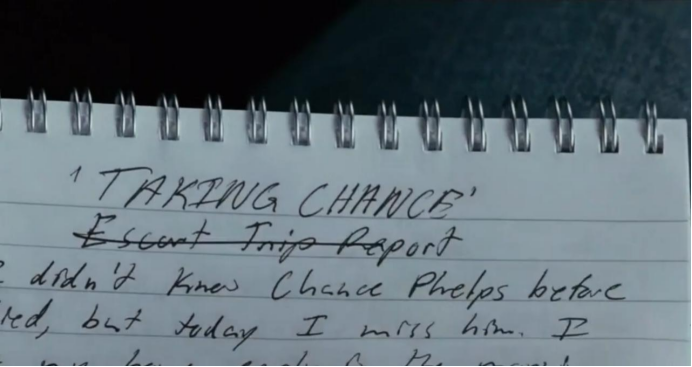 'TAKING CHANCE'
Escort Trip Report
didn't know Chance Phelps before
but today I miss him. I